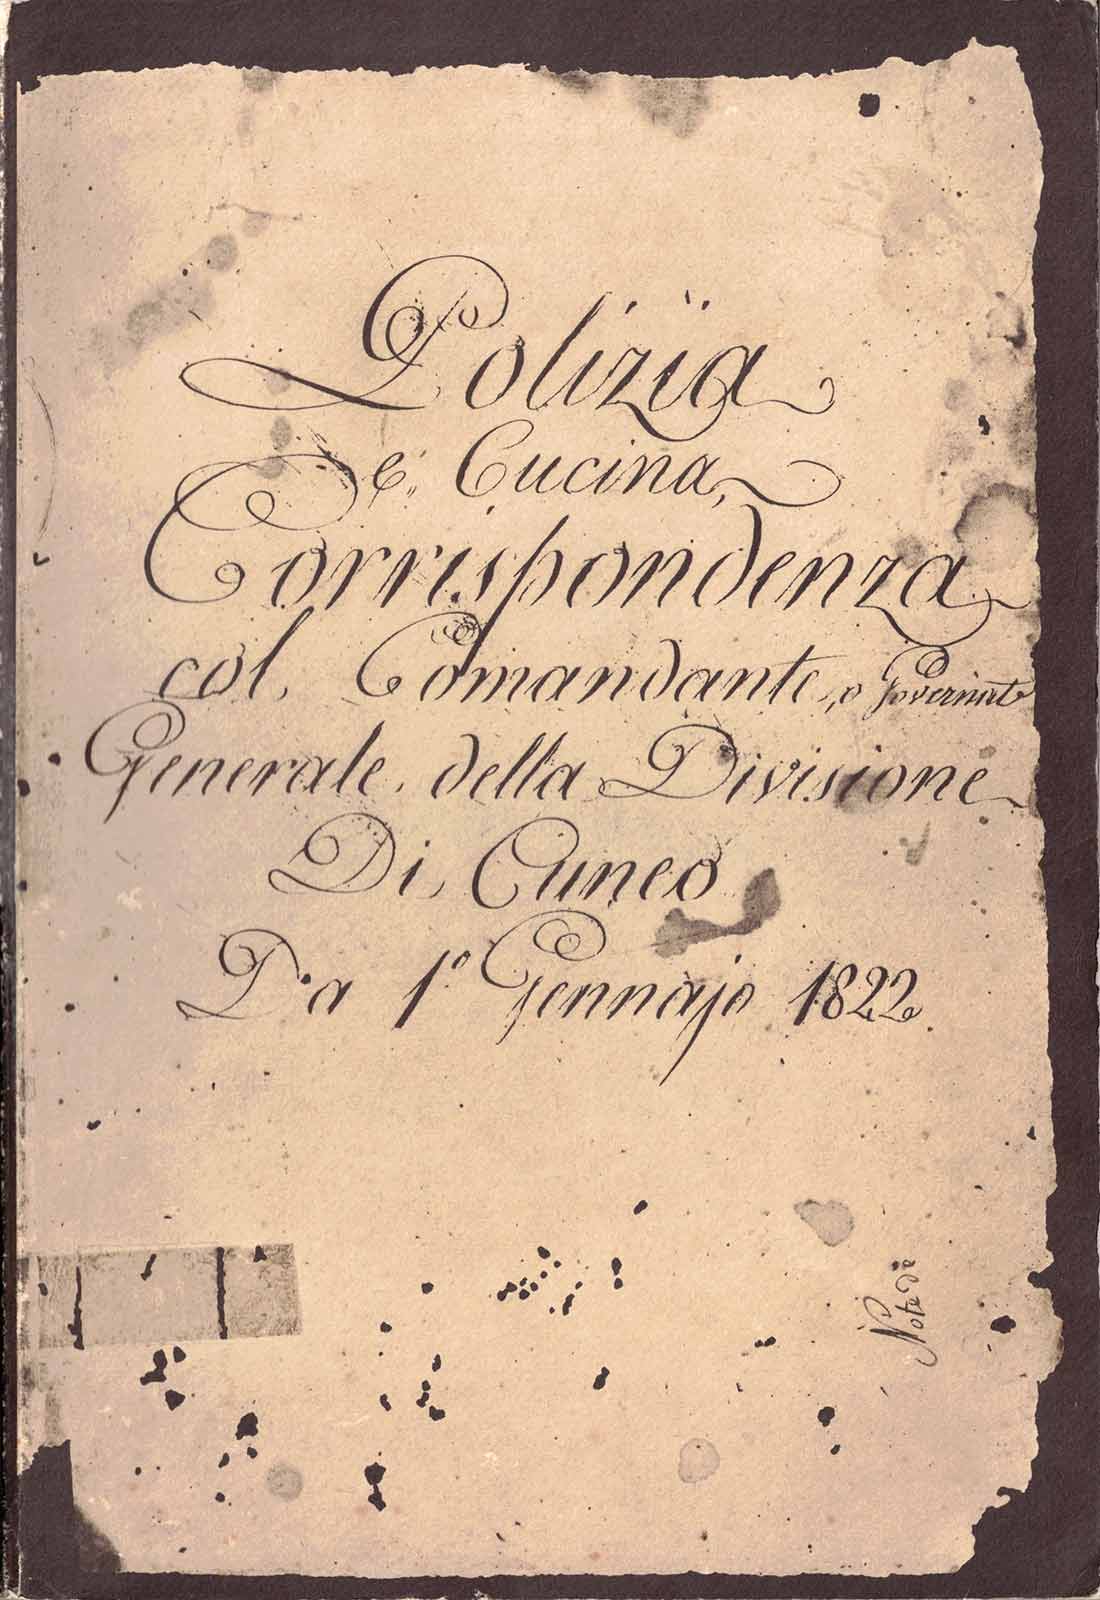 Polizïa
e, Cucina,
Corrispondenza
col, Comandante, o Governat.e
Generale, della Divisione
Di, Cuneo
Da 1.° Gennajo 1822.
Note di